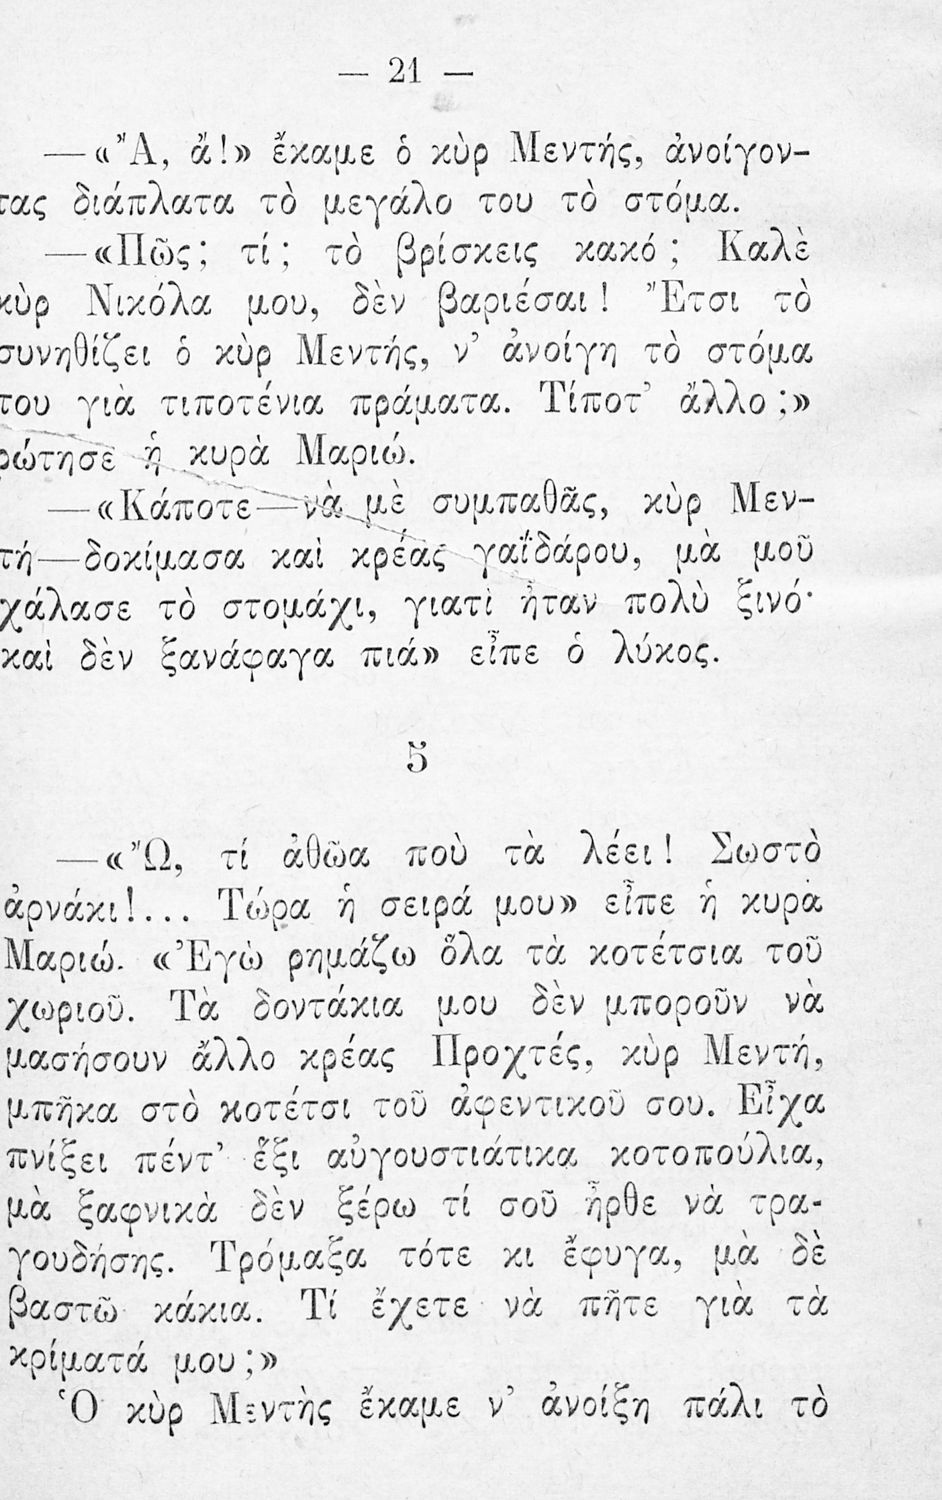 — 21 —
—«Ἄ, ἄ!» ἔκαμε ὁ κὺρ Μεντής, ἀνοίγον-
τας διάπλατα τὸ μεγάλο του τὸ στόμα.
—«Πῶς; τί; τὸ βρίσκεις κακό; Καλὲ
κὺρ Νικόλα μου, δὲν βαριέσαι! Ἔτσι τὸ
συνηθίζει ὁ κὺρ Μεντής, ν’ ἀνοίγη τὸ στόμα
του γιὰ τιποτένια πράματα. Τίποτ’ ἄλλο;»
ρώτησε ἡ κυρὰ Μαριώ.
—«Κάποτε—νὰ μὲ συμπαθᾶς, κὺρ Μεν-
τή—δοκίμασα καὶ κρέας γαΐδάρου, μὰ μοῦ
χάλασε τὸ στομάχι, γιατὶ ἦταν πολὺ ξινό·
καὶ δὲν ξανάφαγα πιά» εἶπε ὁ λύκος.
5
—«Ὤ, τί ἀθῶα ποὺ τὰ λέει! Σωστὸ
ἀρνάκι!... Τώρα ἡ σειρά μου» εἶπε ἡ κυρὰ
Μαριώ. «Ἐγὼ ρημάζω ὅλα τὰ κοτέτσια τοῦ
χωριοῦ. Τὰ δοντάκια μου δὲν μποροῦν νὰ
μασήσουν ἄλλο κρέας Προχτές, κὺρ Μεντή,
μπῆκα στὸ κοτέτσι τοῦ ἀφεντικοῦ σου. Εἶχα
πνίξει πέντ’ ἕξι αὐγουστιάτικα κοτοπούλια,
μὰ ξαφνικὰ δὲν ξέρω τί σοῦ ἦρθε νὰ τρα-
γουδήσης. Τρόμαξα τότε κι ἔφυγα, μὰ δὲ
βαστῶ κάκια. Τί ἔχετε νὰ πῆτε γιὰ τὰ
κρίματά μου;»
Ὁ κὺρ Μεντὴς ἔκαμε ν’ ἀνοίξη πάλι τὸ